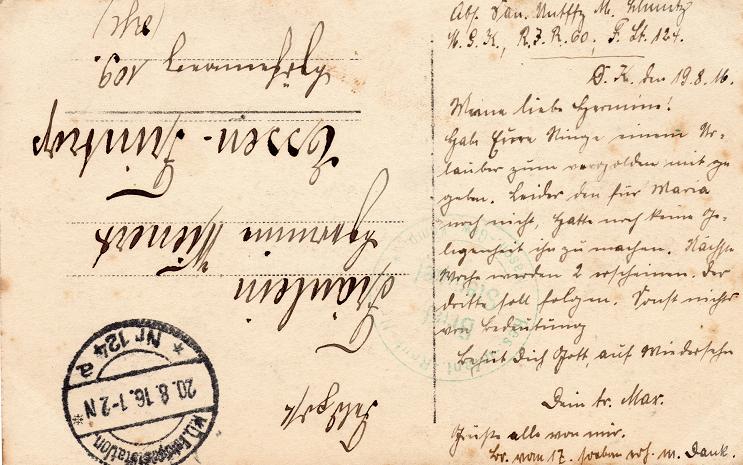 Abs. San. Untffz M. Schmitz
M. G. K., R. J. R. 60, F. St. 124.
D. K. den 19.8.16.
Meine liebe Hermine!
Habe Eure Ringe einem Ur-
lauber zum vergolden mit ge
geben. Leider den für Maria
noch nicht, hatte noch keine Ge-
legenheit ihn zu machen. Nächste
Woche werden 2 erscheinen. Der
dritte soll folgen. Sonst nichts
von Bedeutung
Behüt Dich Gott, auf Wiedersehn
Dein tr. Max.
Grüße alle von mir.
Br. vom 17. soeben erh. m. Dank.
Feldpost
Fräulein
Hermine Weinert
Essen-Frintrop
109.
(Rhr)
Brief
Stempel
K.D. Feldpoststation
20.8.16. 1-2 N
* Nr 124 *
a